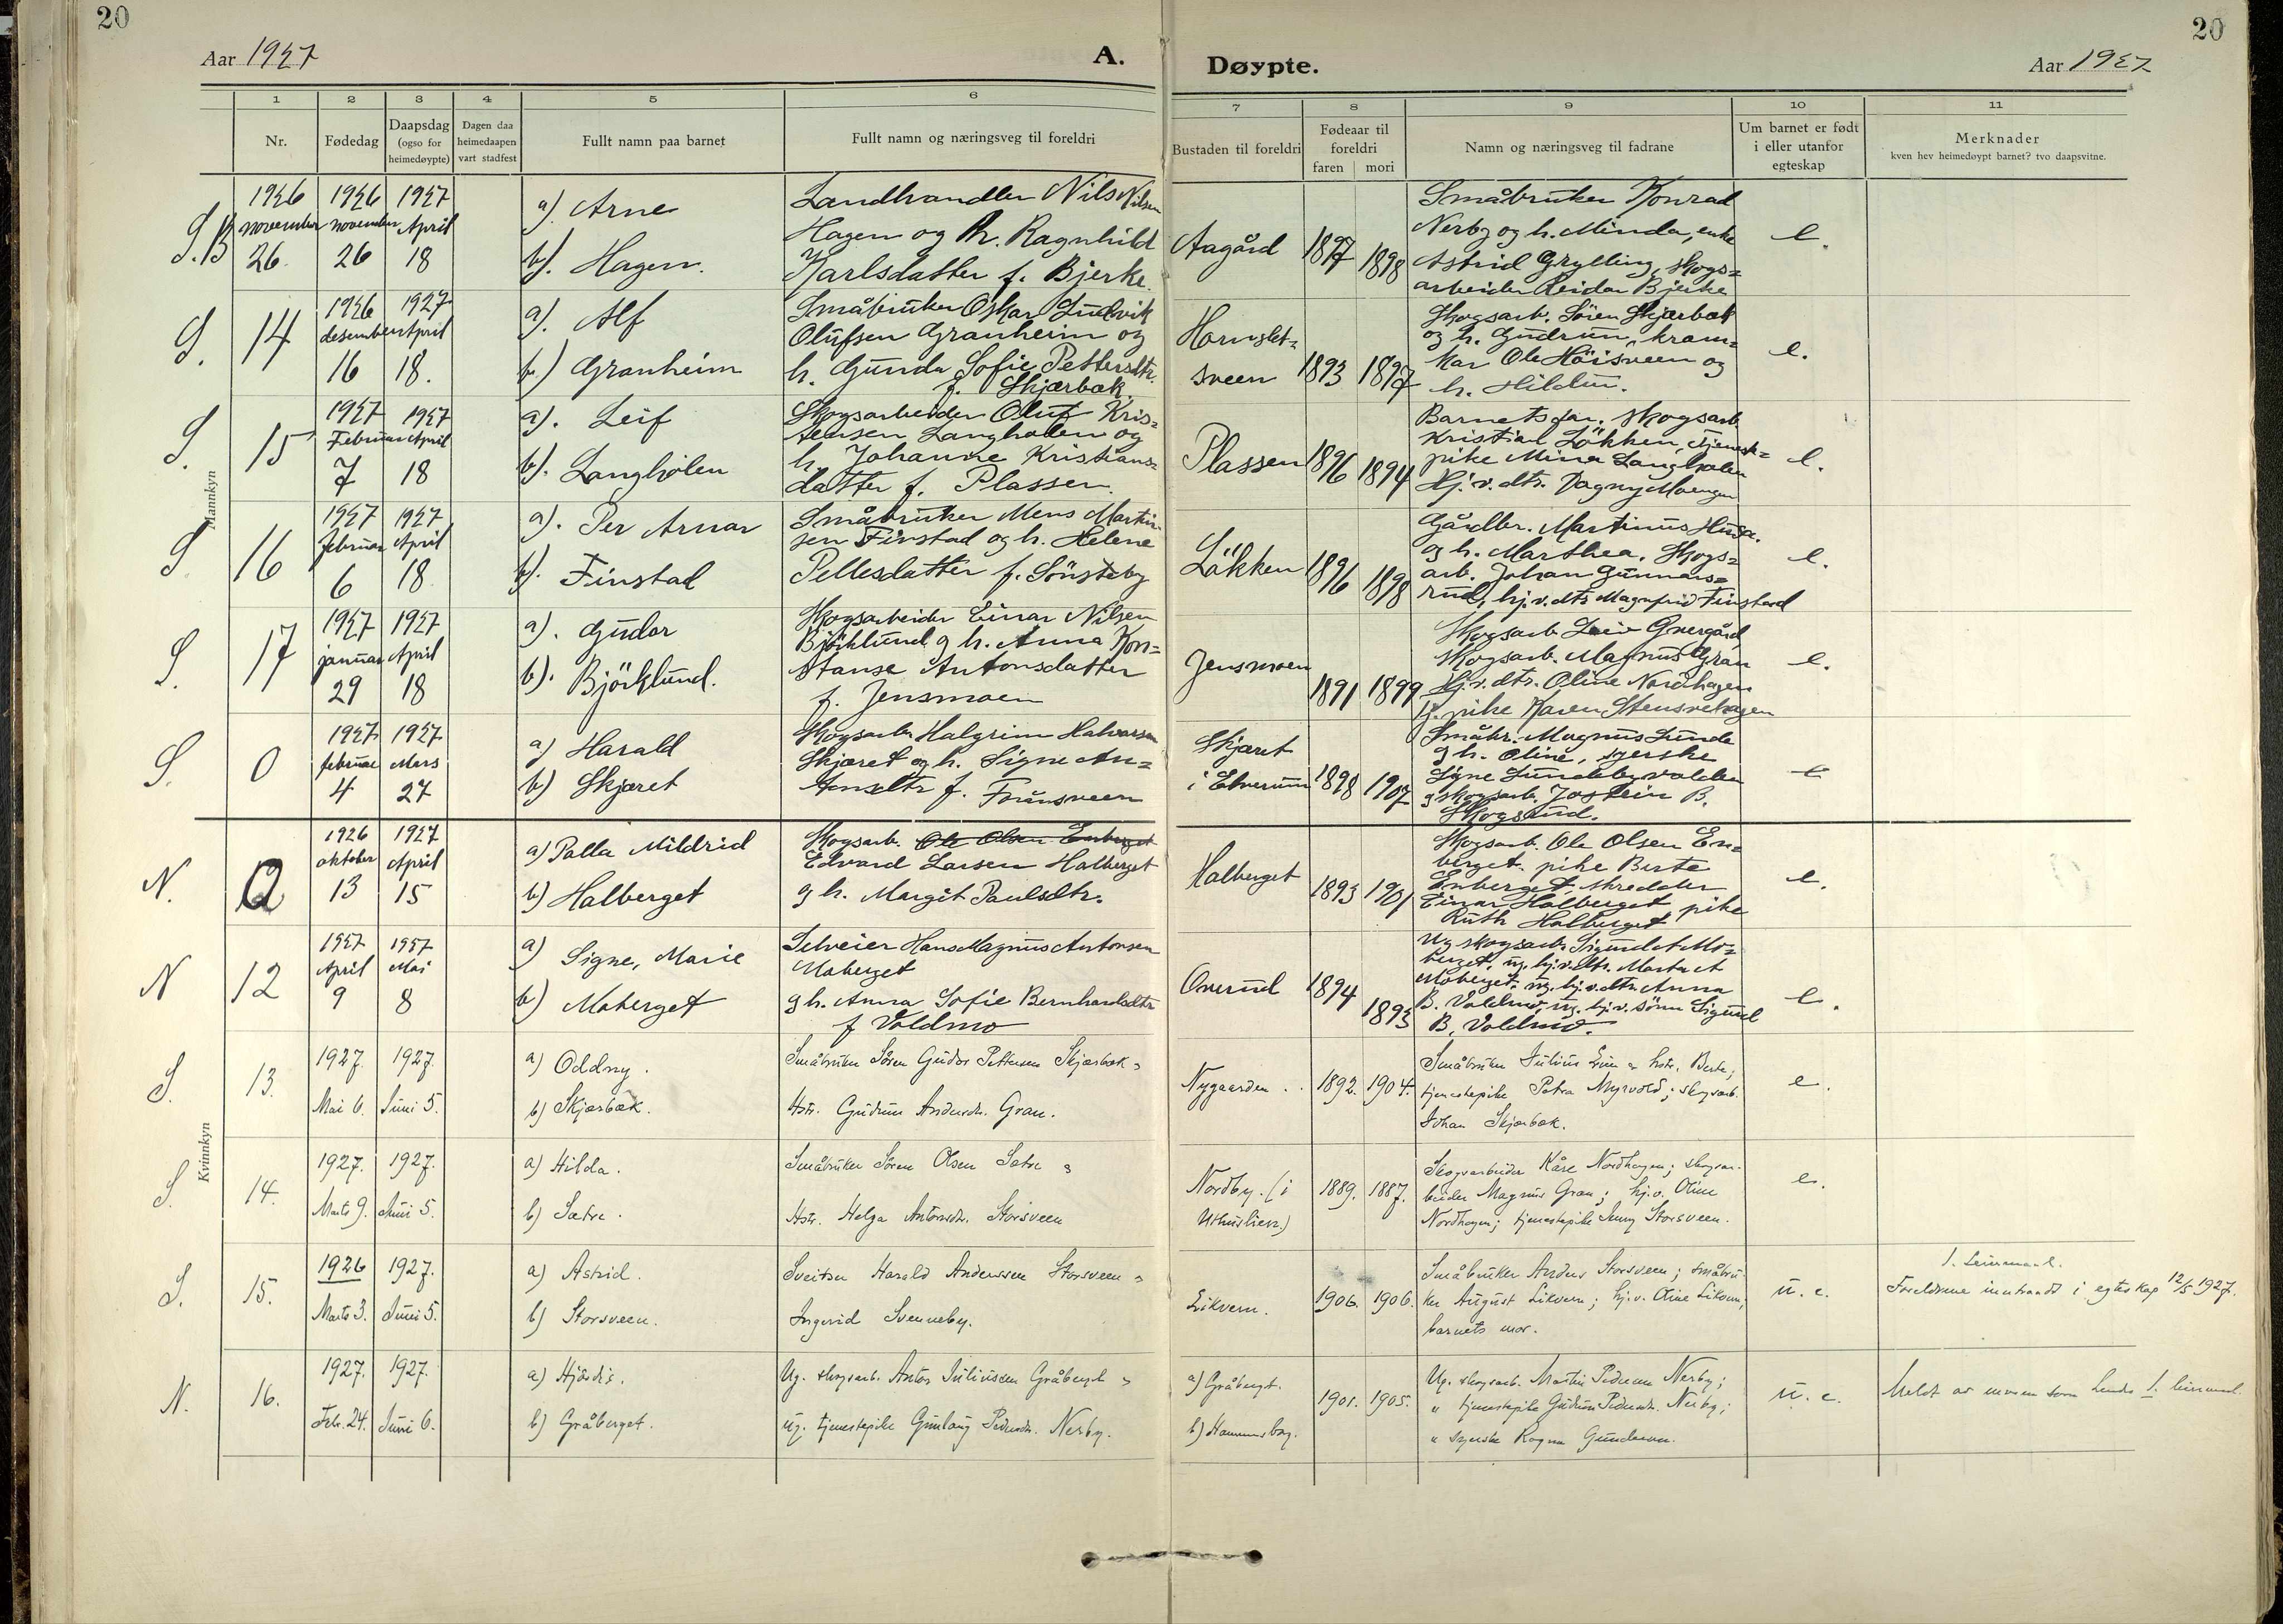 20
20
Aar 1927
A.
Døypte.
Aar 1927
1
2
3
4
5
6
7
8
9
10
11
Nr.
Fødedag
Daapsdag
(ogso for
heimedøypte)
Dagen daa
heimedaapen
vart stadfest
Fullt namn paa barnet
Fullt namn og næringsveg til foreldri
Bustaden til foreldri
Fødeaar til
foreldri
faren mori
Namn og næringsveg til fadrane
Um barnet er født
i eller utanfor
egteskap
Merknader
kven hev heimedøypt barnet? tvo daapsvitne.
Mannkyn
S.B
1926
november
26.
1926
november
26
1927
April
18
a) Arne
b). Hagen.
Landhandler Nils Nilsen
Hagen og h. Ragnhild
Karlsdatter f. Bjerke.
Aagård
1897
1898
Småbruker Konrad
Nerby og h. Minda, enke
Astrid Grylling, skogs=
arbeider Reidar Bjerke
e.
S.
14
1926
desember
16
1927
April
18.
a). Alf
b) Granheim
Småbruker Oskar Ludvik
Olufsen Granheim og
h. Gunda Sofie Pettersdtr.
f. Skjærbæk.
Hornslet=
sveen
1893
1897
Skogsarb. Sören Skjærbæk
og h. Gudrun, kram=
kar Ole Höisveen og
h. Hildur.
e.
S.
15
1927
Februar
7
1927
April
18
a). Leif
b). Langholen
Skogsarbeider Oluf Kris=
tensen Langholen og
h. Johanne Kristians=
datter f. Plassen.
Plassen
1896
1894
Barnets far, skogsarb
Kristian Lökken, tjeneste=
pike Mina Langholen
Hj.v.dtr. Dagny Moengen
e.
S
16
1927
februar
6
1927
April
18
a). Per Arnar
b). Finstad
Småbruker Mens Martin
sen Finstad og h. Helene
Pellesdatter f. Sönsteby
Lökken
1896
1898
Gårdbr. Martinus
og h. Marthea. Skogs=
arb. Johan Gunnars=
rud, hj.v.dtr Magnfrid Finstad
e.
S.
17
1927
januar
29
1927
April
18
a). Gudar
b). Björklund.
Skogsarbeider Einar Nilsen
Björklund og h. Anna Kon=
stanse Antonsdatter
f. Jensmoen
Jensmoen
1891
1899
Skogsarb
Skogsarb. Magnus Gran
Hj.v.dtr. Oline Nordhagen
tj.pike Karen Stensvehagen
e.
S.
0
1927
februar
4
1927
Mars
27
a) Harald
b) Skjæret
Skogsarb. Halgrim Halvorsen
Skjæret og h. Signe An=
tonsdtr f. Furusveen
Skjæret
i Elverum
1898
1907
Småbr. Magnus Lunde
og h. Oline, syerske
Signe Lundebyvolden
og skogsarb. Jostein B.
Skogsrud.
e
Kvinnkyn
N.
0
1926
oktober
13
1927
April
15
a) Palla Mildrid
b) Halberget
Skogsarb. Ole Olsen Enberget
Edvard Larsen Halberget
og h. Margit Paulsdtr.
Halberget
1893
1901
Skogsarb. Ole Olsen En=
berget. pike Berte
Enberget, skredder
Einar Halberget pike
Ruth Halberget
e.
N
12
1927
April
9
1927
Mai
8
a) Signe, Marie
b) Moberget
Selveier Hans Magnus Antonsen
Moberget
og h. Anna Sofie Bernhardsdtr
f Voldmo
Overud
1894
1893
Ug skogsarb Sigurd A Mo=
berget, ug. hj.v.dtr. Marta A
Moberget, ug. hj.v.dtr. Anna
B. Voldmo, ug. hj.v. sönn Sigurd
B. Voldmo.
e.
S.
13.
1927.
Mai 6.
1927.
Juni 5.
a) Oddny.
b) Skjærbæk.
Småbruker Sören Gudar Pettersen Skjærbæk
Hstr. Gudrun Andersdr. Gran.
Nygaarden.
1892.
1904.
Småbruker Julius Lien hstr. Berte;
tjenestepike Petra Myrvold; skogsarb.
Johan Skjærbæk.
e.
S.
14.
1927.
Marts 9.
1927.
Juni 5.
a) Hilda.
b) Sætre.
Småbruker Sören Olsen Sætre
Hstr. Helga Antonsdr. Storsveen
Nordby. (i
Uthuslien.)
1889.
1887.
Skogsarbeider Kåre Nordhagen; skogsar-
beider Magnus Gran; hj.v. Oline
Nordhagen; tjenestepike Jenny Storsveen.
e.
S.
15.
1926
Marts 3.
1927.
Juni 5.
a) Astrid.
b) Storsveen.
Sveitser Harald Anderssen Storsveen
Ingerid Svenneby.
Likvern.
1906.
1906.
Småbruker Anders Storsveen; småbru-
ker August Likvern; hj.v. Oline Likvern;
barnets mor.
u. e.
1. leiermaal.
Foreldrene inntraadt i egteskap 12/5 1927.
N.
16.
1927.
Febr. 24.
1927.
Juni 6.
a) Hjördis.
b) Gråberget.
Ug. skogsarb. Anton Juliussen Gråberget
ug. tjenestepike Gunlaug Pedersdr. Nerby.
a) Gråberget.
b)
1901.
1905.
Ug. skogsarb. Martin Pedersen Nerby;
" tjenestepike Gudrun Pedersdr. Nerby;
" syerske Ragna Gundersen.
u. e.
Meldt av moren som hendes 1. leiermaal.